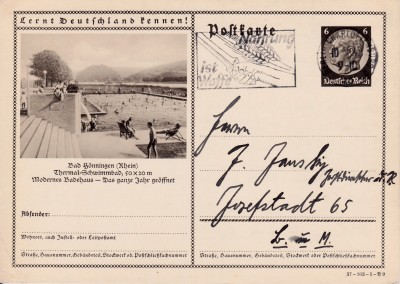 Lernt Deutschland kennen!
Postkarte
6 6
Deutsches Reich
Nahrung
ist
Waffe
Bad Hönningen (Rhein)
Thermal-Schwimmbad, 50 x 20 m
Modernes Badehaus — Das ganze Jahr geöffnet
Absender:
Wohnort, auch Zustell- oder Leitpostamt
Straße, Hausnummer, Gebäudeteil, Stockwerk od. Postschließfachnummer
Herrn
J. Jansky
Josefstadt 65
B. u. M.
Straße, Hausnummer, Gebäudeteil, Stockwerk oder Postschließfachnummer